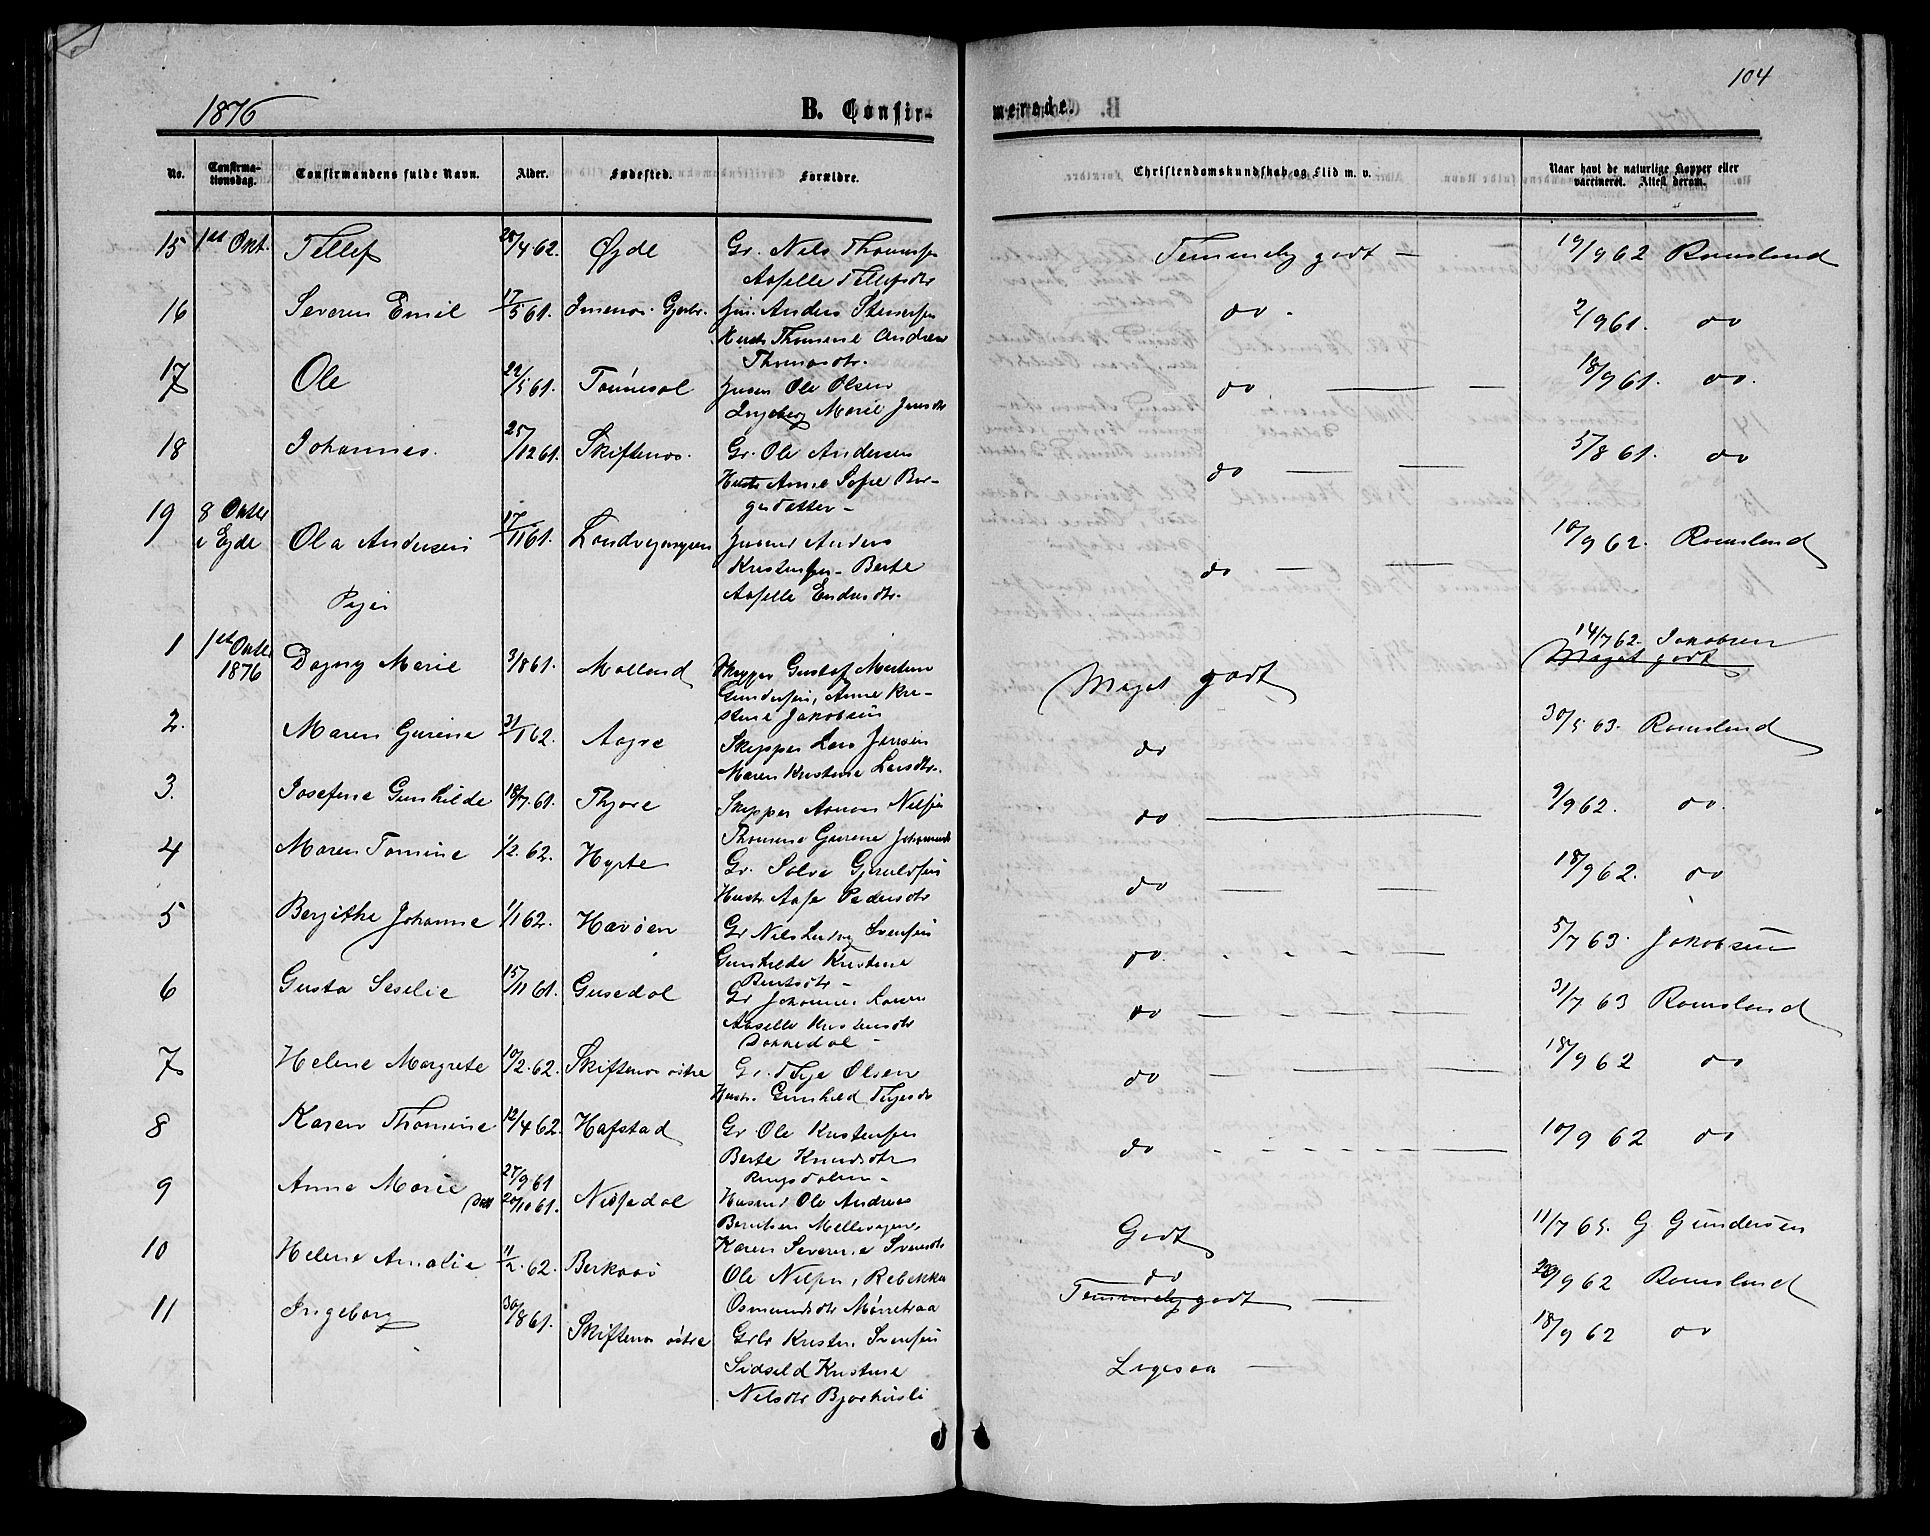 104
1876 B. Confirmerede.
No. Confirmationsdag. Confirmandens fulde Navn. Alder. Fødested. Forældre. Christendomskundskab og Flid m. v. Naar havt de naturlige Kopper eller vaccineret. Attest derom.
15 1st Okt. Tellef /4.62. Øyde Gr. Nils Thomesen Temmelig godt — 19/9 62 Romsland
Aaselle Tellefsdtr
16 Severin Emil 17/5 61. Imenes. Gjerbr. Anders Stenersen do . 2/9 61. do
Hustr Thomine Andrea
Thomasdtr.
17 Ole 22/5 61. Tønnesøl Husm Ole Olsen do 18/9 61. do.
Ingeborg Marie Jensdtr
18 Johannes. 25/12 61. Skiftenes. Gr. Ole Andersen do 5/8 61. do
Hustr Anne Sofie Bor-
gesdatter —
19 8 Oktbr
i Eyde Ola Andersen 17/11 61. Landvigmyren Husmd Anders do 10/9 62. Romsland
Kristensen — Berte
Aaselle Endresdtr.
Piger
1 1st Oktbr
1876 Dagny Marie 3/8 61. Molland Skipper Gustaf Martin Meget godt 14/7 62. Jakobsen
Meget godt
Gundersen, Anne Kri-
stine Jakobsen
2. Maren Gurine 31/1 62. Aagre Skipper Lars Jensen do 30/5 63. Romsland
Maren Kristine Larsdtr.
3. Josefine Gunhilde 18/7. 61. Thjore Skipper Aanon Nilsen do 9/9 62. do
Thomine Gurine Johannesdtr
4 Maren Tomine 1/2. 62. Hyrte Gr. Salve Gjeruldsen do 18/9 62. do
Hustr Aase Pedersdtr
5 Bergithe Johanne 1/1 62. Havøen Gr Nils Ludvig Svensen do 5/7 63. Jakobsen
Gunhilde Kristine
Berntsdtr —
6 Gusta Seselie 15/11 61. Gusedal Gr Johannes Larsen do 31/7 63 Romsland
Aaselle Kristensdtr
Dannedal —
7 Helene Margrete 10/2. 62. Skiftenes østre Gr. Terje Olsen do 18/9 62 do
Hustr. Gunhild Terjesdtr
8 Karen Thomine 12/4 62. Hafstad Gr Ole Kristensen do 10/9 62 do
Berte Knudsdtr
Ringsdalen —
9 Anna Marie 27/9 61
Døbt 20/10 61. Nessedal Husmd Ole Andreas Godt 11/7 65. G Gundersen
Berntsen Mollevigen,
Karen Severine Svensdtr
10 Helene Amalie 11/2. 62. Berkaas Ole Nilsen, Rebekka do
Temmelig godt /9 62 Romsland
Osmundsdtr Morretraa
11 Ingeborg 30/8 61. Skiftenes østre Grbr Kristen Svensen Ligesaa 18/9 62 do
Sidseld Kristine
Nilsdtr Bjorkusli